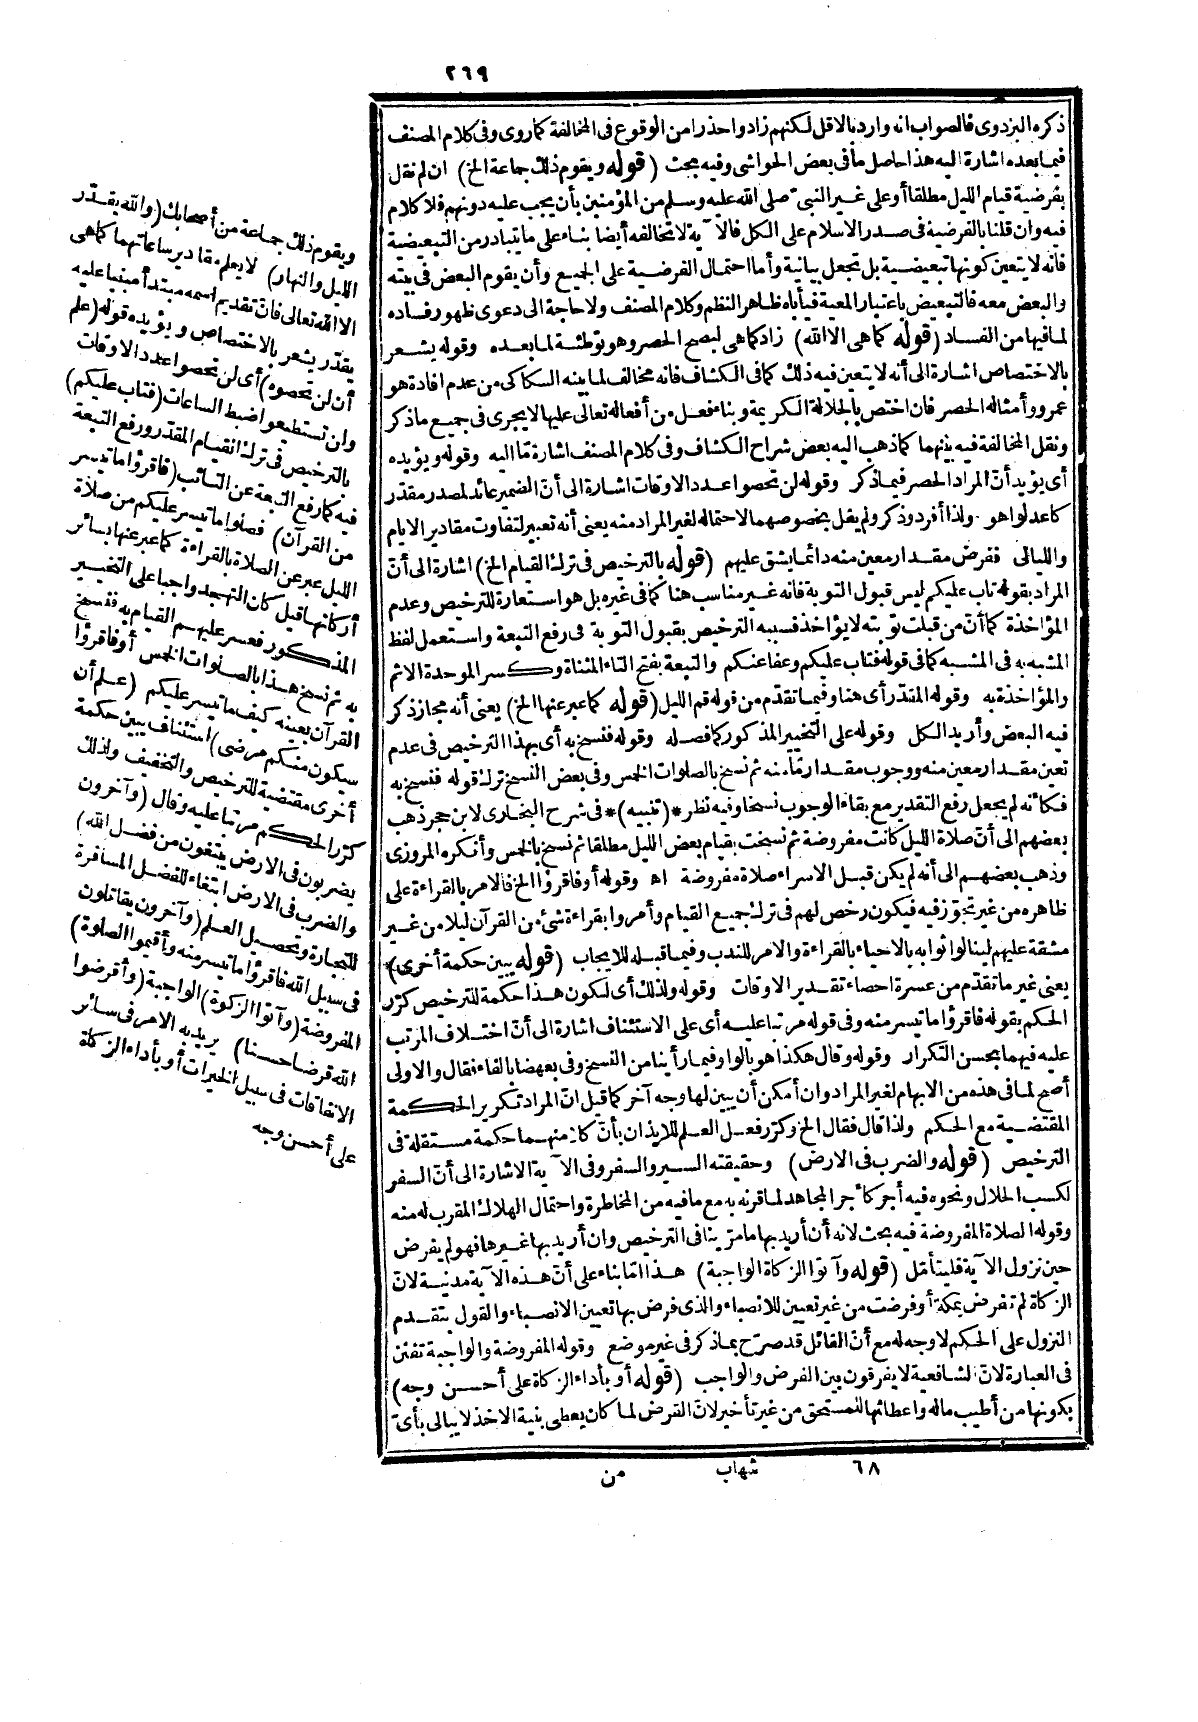 ٢٦٩
ذكره البزدوى فالصواب انه وارد بالاقل لكنهم زادوا حذرا من الوقوع فى المخالفة كما روى وفى كلام المصنف
فيما بعده اشارة اليه هذا حاصل ما فى بعض الحواشى وفيه بحث (قوله ويقوم ذلك جماعة الخ) ان لم نقل
بفرضية قيام الليل مطلقا أو على غير النبى صلى الله عليه وسلم من المؤمنين بأن يجب عليه دونهم فلا كلام
فيه وان قلنا بالفرضية فى صدر الاسلام على الكل فالآية لا تخالفه أيضا بناء على ما يتبادر من التبعيضية
فانه لا يتعين كونها تبعيضية بل تجعل بيانية وأما احتمال الفرضية على الجميع وأن يقوم البعض فى بيته
والبعض معه فالتبعيض باعتبار المعية فيأباه ظاهر النظم وكلام المصنف ولا حاجة الى دعوى ظهور فساده
لما فيها من الفساد (قوله كما هى الا الله) زاد كما هى ليصح الحصر وهو توطئة لما بعده وقوله يشعر
بالاختصاص اشارة الى أنه لا يتعين فيه ذلك كما فى الكشاف فانه مخالف لما بينه السكاكى من عدم افادة هو
عمرو وأمثاله الحصر فان اختص بالجلالة الكريمة وبناء فعل من أفعاله تعالى عليها لا يجرى فى جميع ما ذكر
ونقل المخالفة فيه بينهما كما ذهب اليه بعض شراح الكشاف وفى كلام المصنف اشارة ما اليه وقوله ويؤيده
أى يؤيد أن المراد الحصر فيما ذكر وقوله لن تحصوا عدد الاوقات اشارة الى أن الضمير عائد لمصدر مقدر
كاعدلوا هو ولذا أفرد وذكر ولم يقل يحصوصهما لاحتماله لغير المراد منه يعنى أنه تعبير لتفاوت مقادير الايام
والليالى ففرض مقدار معين منه دائما يشق عليهم (قوله بالترخيص فى ترك القيام الخ) اشارة الى أن
المراد بقوله تاب عليكم ليس قبول التوبة فانه غير مناسب هنا كما فى غيره بل هو استعارة للترخيص وعدم
المؤاخذة كما أن من قبلت توبته لا يؤاخذ فشبه الترخيص بقبول التوبة فى رفع التبعة واستعمل لفظ
المشبه به فى المشبه كما فى قوله فتاب عليكم وعفا عنكم والتبعة بفتح التاء المثناة وكسر الموحدة الاثم
والمؤاخذة به وقوله المقدر أى هنا وفيما تقدم من قوله قم الليل (قوله كما عبر عنها الخ) يعنى أنه مجاز ذكر
فيه البعض وأريد الكل وقوله على التخيير المذكور كما فصله وقوله فنسخ به أى بهذا الترخيص فى عدم
تعين مقدار معين منه ووجوب مقدار ما منه ثم نسخ بالصلوات الخمس وفى بعض النسخ ترك قوله فنسخ به
فكأنه لم يجعل رفع التقدير مع بقاء الوجوب نسخا وفيه نظر *(تنبيه)* فى شرح البخارى لابن حجر ذهب
بعضهم الى أن صلاة الليل كانت مفروضة ثم نسخت بقيام بعض الليل مطلقا ثم نسخ بالخمس وأنكره المروزى
وذهب بعضهم الى أنه لم يكن قبل الاسراء صلاة مفروضة اه وقوله أو فاقرؤا الخ فالامر بالقراءة على
ظاهره من غير تجوز فيه فيكون رخص لهم فى ترك جميع القيام وأمروا بقراءة شئ من القرآن ليلا من غير
مشقة عليهم لينالوا ثوابه بالاحياء بالقراءة والامر للندب وفيما قبله للايجاب (قوله يبين حكمة أخرى)
يعنى غير ما تقدم من عسرة احصاء تقدير الاوقات وقوله ولذلك أى لكون هذا حكمة للترخيص كرر
الحكم بقوله فاقرؤا ما تيسر منه وفى قوله مرتبا عليه أى على الاستئناف اشارة الى أن اختلاف المرتب
عليه فيهما يحسن التكرار وقوله وقال هكذا هو بالواو فيما رأينا من النسخ وفى بعضها بالفاء فقال والاولى
أصح لما فى هذه من الابهام لغير المراد وان أمكن أن يبين لها وجه آخر كما قيل ان المراد تكرير الحكمة
المقتضية مع الحكم ولذا قال فقال الخ وكرر فعل العلم للايذان بأن كلا منهما حكمة مستقلة فى
الترخيص (قوله والضرب فى الارض) وحقيقته السير والسفر وفى الآية الاشارة الى أن السفر
لكسب الحلال ونحوه فيه أجر كأجر المجاهد لما قرنه به مع ما فيه من المخاطرة واحتمال الهلاك المقرب له منه
وقوله الصلاة المفروضة فيه بحث لانه أن أريد بها ما مر ينافى الترخيص وان أريد بها غيرها فهو لم يفرض
حين نزول الآية فليتأمل (قوله وآتوا الزكاة الواجبة) هذا اما بناء على أن هذه الآية مدنية لان
الزكاة لم تفرض بمكة أو فرضت من غير تعيين للانصباء والذى فرض بها تعيين الانصباء والقول بتقدم
النزول على الحكم لا وجه له مع أن القائل قد صرح بما ذكر فى غير موضع وقوله المفروضة والواجبة تفنن
فى العبارة لان الشافعية لا يفرقون بين الفرض والواجب (قوله أو بأداء الزكاة على أحسن وجه)
بكونها من أطيب ماله واعطائها للمستحق من غير تأخير لان القرض لما كان يعطى بنية الاخذ لا يبالى بأى
ويقوم ذلك جماعة من أصحابك (والله يقدر
الليل والنهار) لا يعلم مقادير ساعاتهما كما هى
الا الله تعالى فان تقديم اسمه مبتدأ مبنيا عليه
يقدر يشعر بالاختصاص ويؤيده قوله (علم
أن لن تحصوه) أى لن تحصوا عدد الاوقات
ولن تستطيعوا ضبط الساعات (فتاب عليكم)
بالترخيص فى ترك القيام المقدر ورفع التبعة
فيه كما رفع التبعة عن التائب (فاقرؤا ما تيسر
من القرآن) فصلوا ما تيسر عليكم من صلاة
الليل عبر عن الصلاة بالقراءة كما عبر عنها بسائر
أركانها قيل كان التهجد واجبا على التخيير
المذكور فعسر عليهم القيام به فنسخ
به ثم نسخ هذا بالصلوات الخمس أو فاقرؤا
القرآن بعينه كيف ما تيسر عليكم (علم أن
سيكون منكم مرضى) استئناف يبين حكمة
أخرى مقتضية للترخيص والتخفيف ولذلك
كرر الحكم مرتبا عليه وقال (وآخرون
يضربون فى الارض يبتغون من فضل الله)
والضرب فى الارض ابتغاء للفضل المسافرة
للتجارة وتحصيل العلم (وآخرون يقاتلون
فى سبيل الله فاقرؤا ما تيسر منه وأقيموا الصلوة)
المفروضة (وآتوا الزكوة) الواجبة (وأقرضوا
الله قرضا حسنا) يريد به الامر فى سائر
الانفاقات فى سبيل الخيرات أو بأداء الزكاة
على أحسن وجه
٦٨ شهاب من